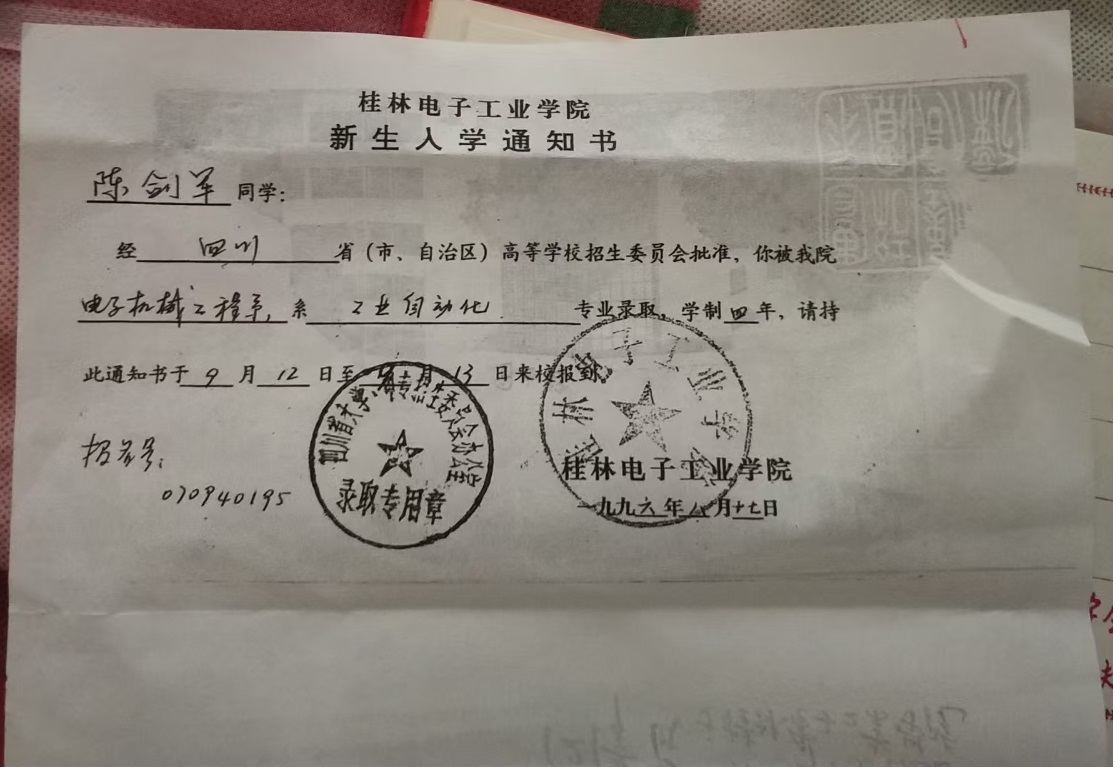 桂林电子工业学院
新生入学通知书
陈剑军 同学:
经 四川 省(市、自治区)高等学校招生委员会批准,你被我院
电子机械工程系 系 工业自动化 专业录取,学制四年,请持
此通知书于 9 月 12 日至 9 月 13 日来校报到。
报名号:
070940195
四川省大学中专招生委员会办公室
录取专用章
桂林电子工业学院
桂林电子工业学院
一九九六年八月十七日